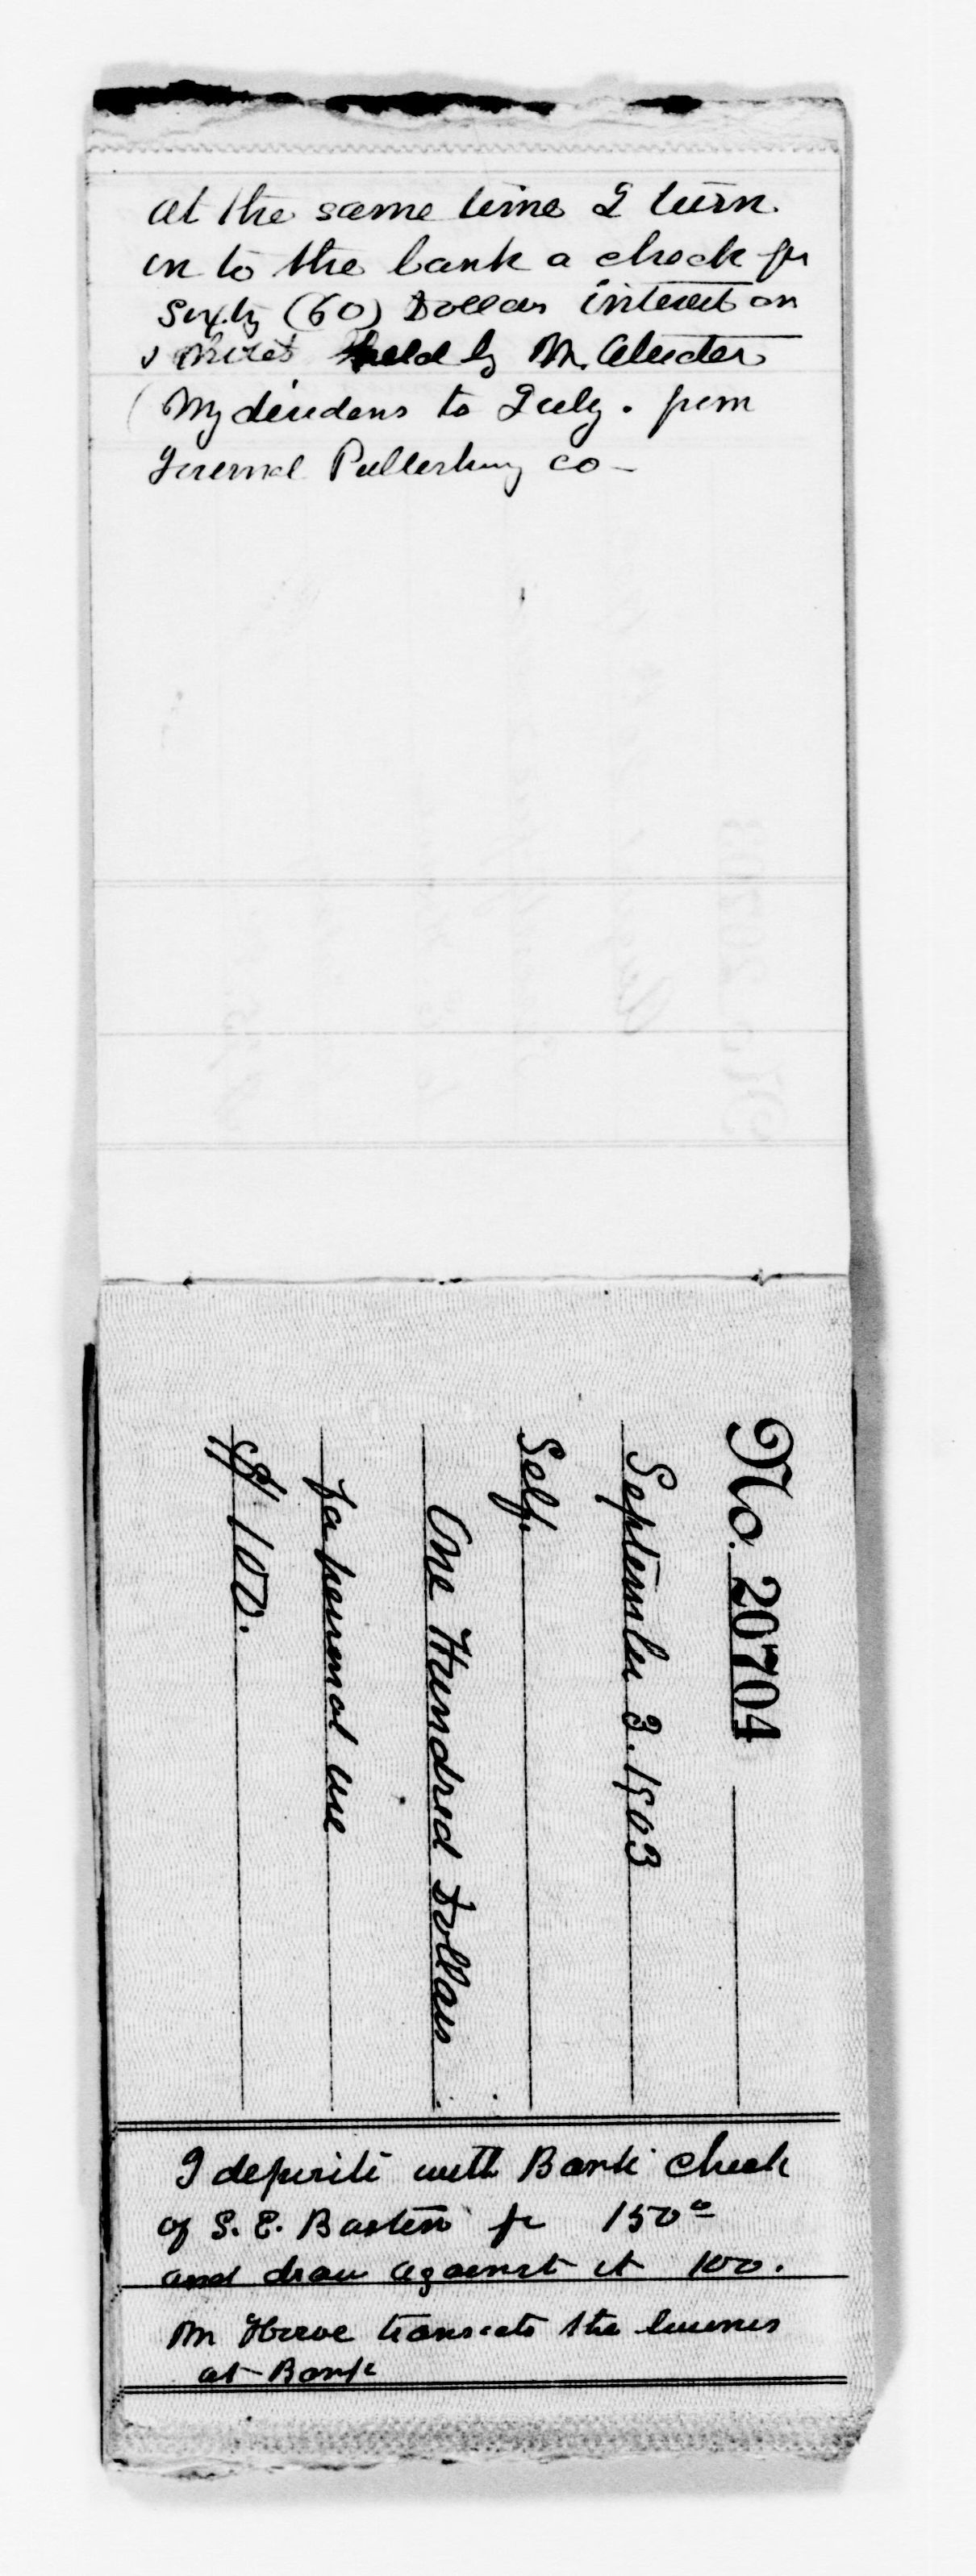 at the same time I turn
in to the bank a check for
Sixty (60) Dollars interest on
held by M.
My dividens to July. from
Publishing co-
No. 20704
September 3. 1903
Self.
One Hundred Dollars
for personal use
$ 100.
I deposite with Bank check
of S. E. Barton for 150 00
and draw against it 100.
Mr transacts the business
at Bank